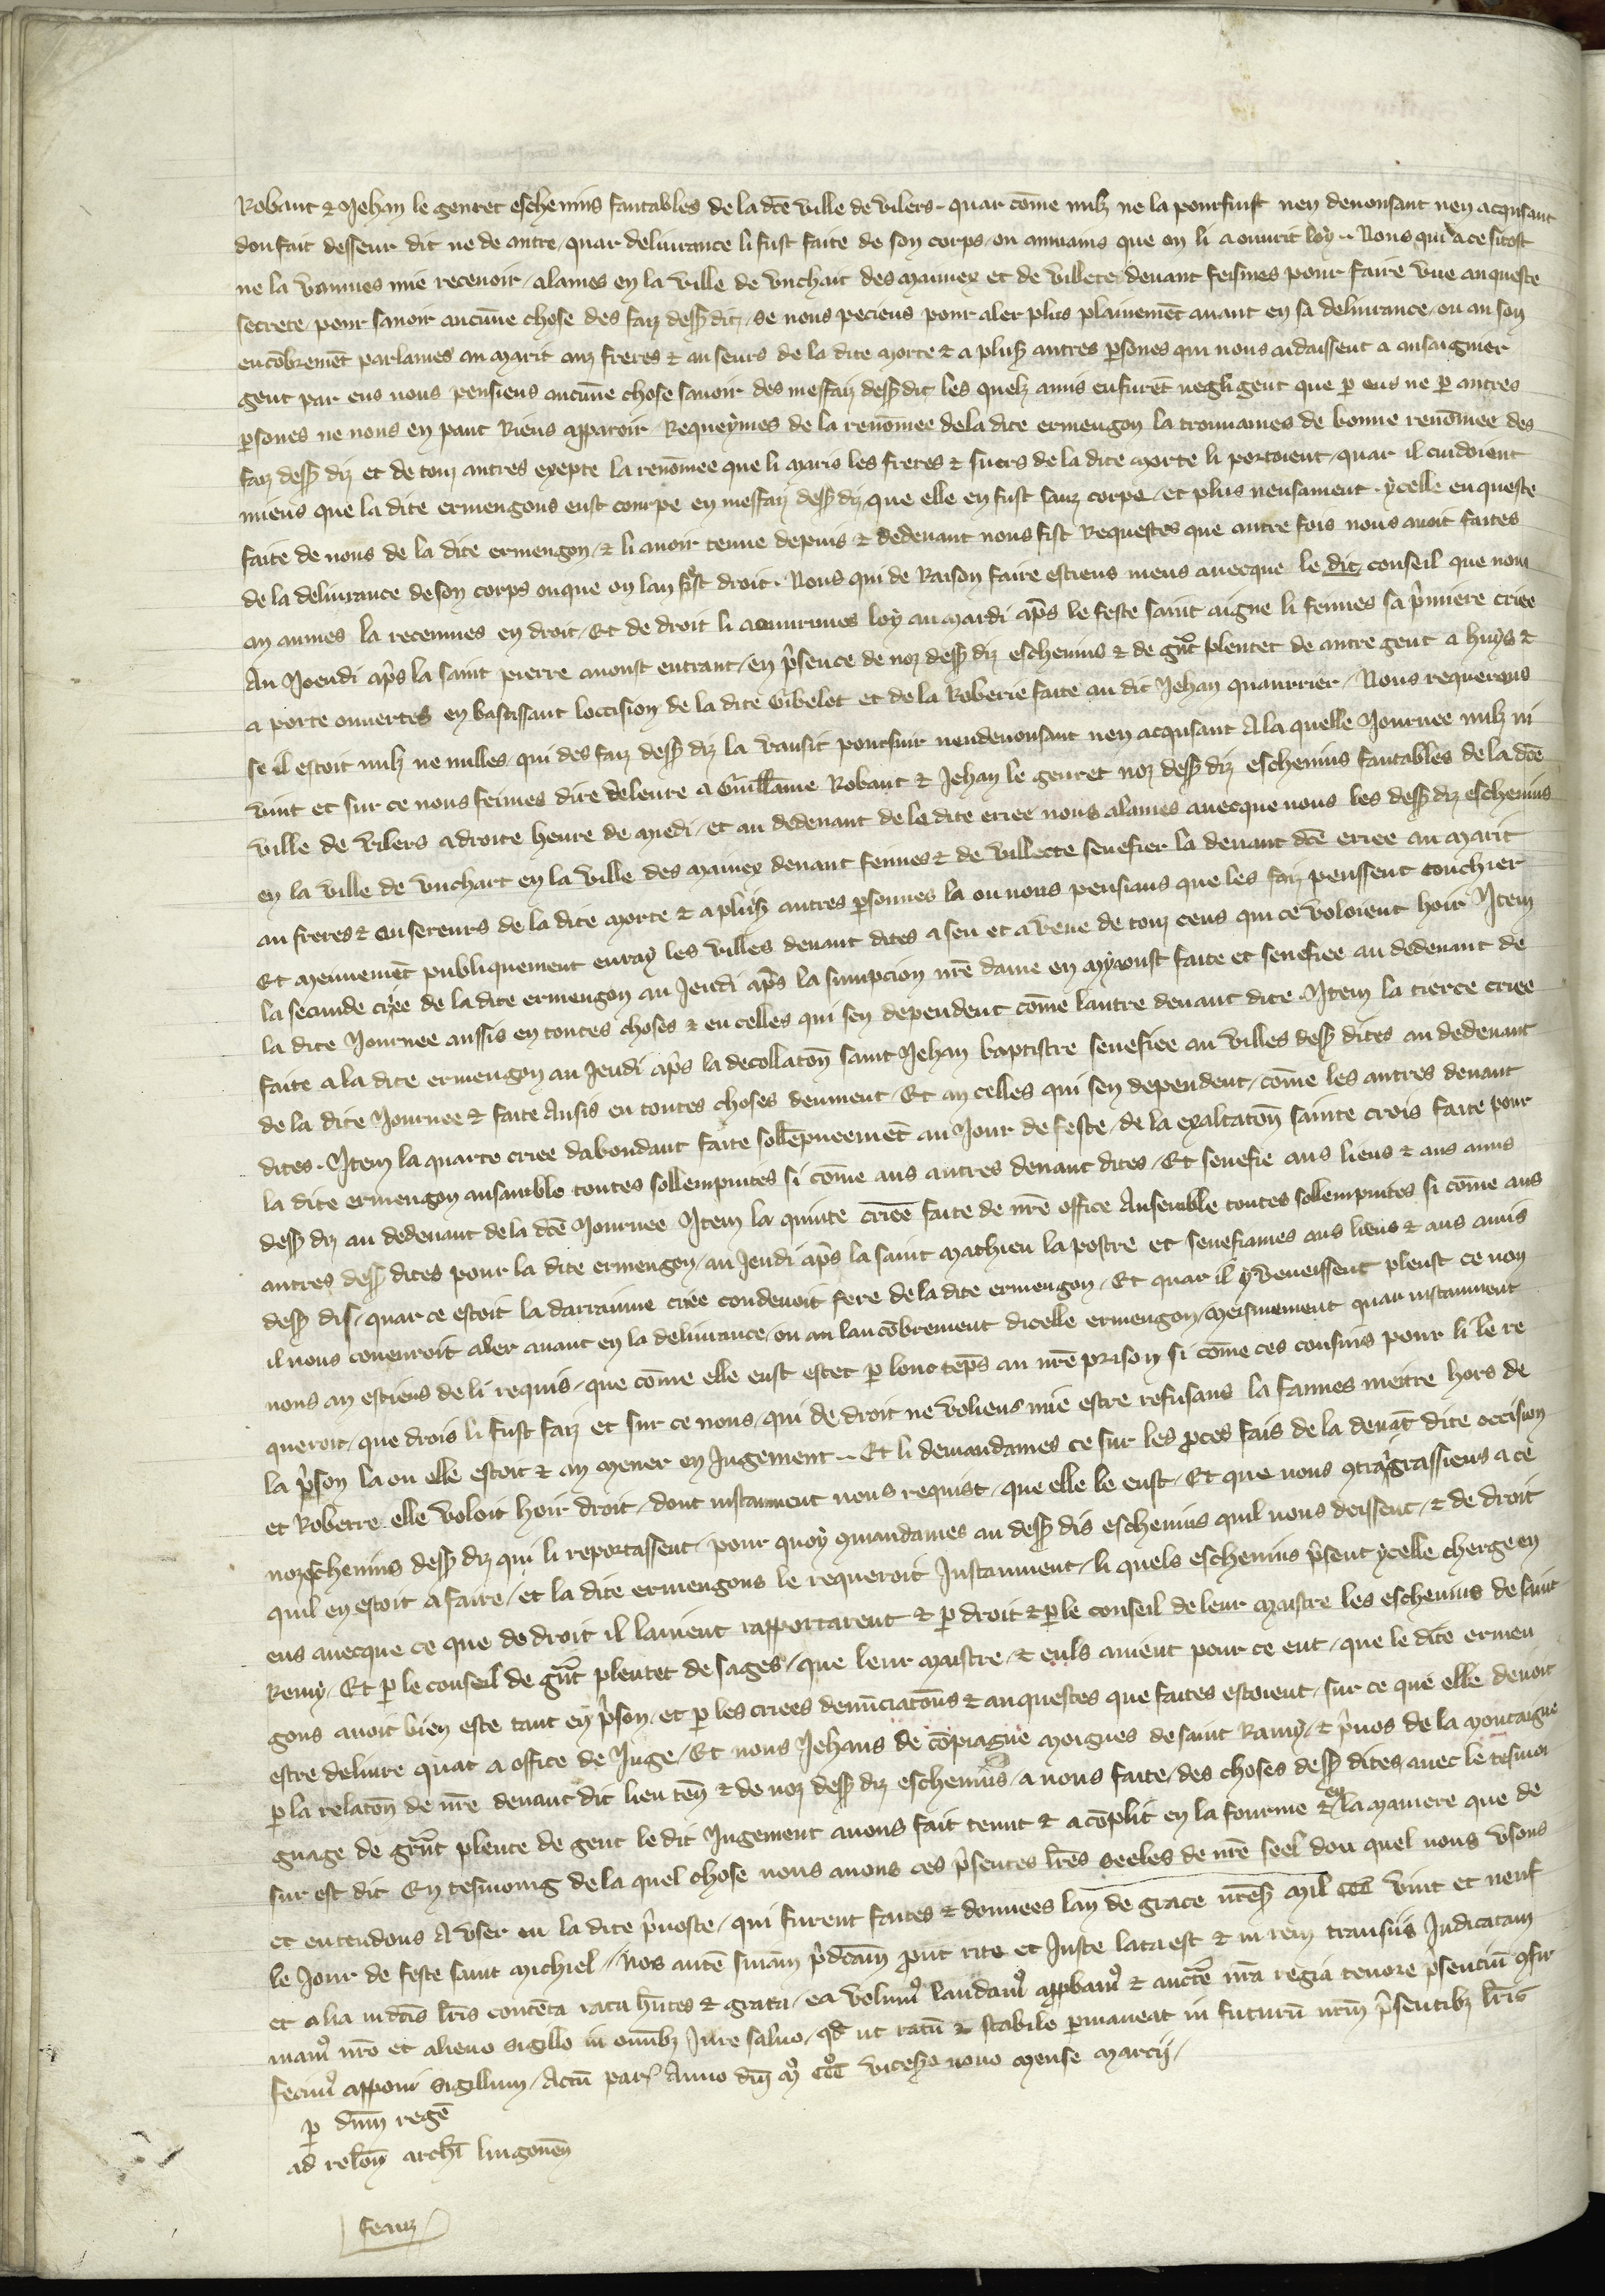 Robaut & Jehan le genret escheuins fautables de la dcē ville de vilers . quar cōme nulz ne la poursuist nen denonsant nen acqusant
dou fait desseur dit ne de autre / quar deliurance li fust faite de son corps / ou anmains que on li aouurit loy .. Nous qui a ce sitost
ne la vousmes mie receuoir / alames en la ville de vnchait des mainey et de villete deuant feismes pour faire vne anqueste
secrete / pour sauoir aucune chose des faiz dess dit / se nous peciens pour aler plus plainemēt auant en sa deliurance / ou an son
encōbremēt parlames au marit auz freres & au seurs de la dite morte & a plus autres psones qui nous aidaissent a ansaignier
gent par eus nous pensiens aucune chose sauoir des meffaiz dess dit les quelz amis enfurēt negligent que p eus ne p autres
psones ne nous en paut Riens apparoir / Requeymes de la renōmee de la dite ermengon la trouuames de bonne renōmee des
faiz dess diz et de touz autres exepte la renōmee que li maris les freres & suers de la dite morte li portoient / quar il cuidoient
miens que la dite ermengons eust courpe en meffaiz dess diz que elle en fust sanz corpe / et plus nensament . ycelle enqueste
faite de nous de la dite ermengon / & li auoir tenue depuis & dedeuant nous fist Requestes que autre fois nous auoit faites
de la deliurance de son corps ouque on lan feist droit . Nous qui de Raison faire estiens meus auecque le dit conseil que nous
an aumes la receumes en droit / Et de droit li aouurimes loy au mardi apˢ le feste saint aigne li feimes sa pmiere criee
Au Joeudi apˢ la saint pierre aoust entrant / en psence de noz dess diz escheuins & de gnt plentet de autre gent a huys &
a porte ouuertes en bastissant loccision de la dite Gibelet et de la Roberie faite au dit Jehan quaurrier / Nous requerans
se il estoit nulz ne nulles / qui des faiz dess diz la vausit poursuir nendenonsant nen acqusant A la quelle Journee nulz ni
vint et sur ce nous feimes dire deleure a Guillame Robaut & Jehan le genret noz dess diz escheuins fautables de la dcē
ville de vilers a droite heure de medi / et au dedeuant de la dite criee nous alames auecque nous les dess diz escheuins
en la ville de vnchart en la ville des mainey deuant feimes & de villecte senefier la deuant dcē criee au marit
au freres & au sereurs de la dite morte & a plus autres psonnes la ou nous pensians que les faiz peussent touchier
Et meiuemēt publiquement enray les villes deuant dites a seu et a veue de touz ceus qui ce voloient hoir Item
la secunde criee de la dite ermengon au Jeudi apˢ la sumpcion nrē dame en myaoust faite et senefiee au dedeuant de
la dite Journee aussis en toutes choses & en celles qui sen dependent cōme lautre deuant dite . Item la tierce criee
faite a la dite ermengon au Jeudi apˢ la decollatōn saint Jehan baptistre senefiee au villes dess dites au dedeuant
de la dite Journee & faite Ausis en toutes choses deument / Et an celles qui sen dependent / cōme les autres deuant
dites . Item la quarte criee dabondant faite sollēpneemēt au Jour de feste / de la exaltatōn sainte crois faite pour
la dite ermengon ansamble toutes sollempnites si cōme aus autres deuant dites / Et senefie aus liens & aus amis
dess diz au dedeuant de la dcē Journee Item la quinte criee faite de nrē office Ansemble toutes sollempnites si cōme aus
autres dess dites pour la dite ermengon / au Jeudi apˢ la saint mathieu lapostre et senefiames aus liens & aus amis
dess dis / quar ce estoit la darraniue criee condeuoit fere de la dite ermengon / Et quar il y veneissent pleust ce non
il nous couenroit aler auant en la deliurance / ou an lancōbrement dicelle ermengon / meismement quar instanment
nous an estiens de li requis / que cōme elle eust estet p lonc tēps an nrē prison si cōme ces cousins pour li le re
queroit / que drois li fust faiz et sur ce nous / qui de droit ne voliens mie estre refusans la faimes mettre hors de
la pson la ou elle estoit & an mener en Jugement .. Et li demandames ce sur les pces fais de la deuāt dite occision
et Roberre elle voloit hoir droit / dont instanment nous requist / que elle le eust / Et que nous 9traigrassiens a ce
nozescheuins dess diz qui li reportassent / pour quoy 9mandames au dess dis escheuins quil nous deissent / & de droit
quil en estoit a faire / et la dite ermengons le requeroit Instanment / li quels escheuins psent ycelle cherge en
eus auecque ce que de droit il lauient rapportarent & p droit & p le conseil de leur maistre les escheuins de saint
Remy / Et p le conseil de gnt plentet de sages / que leur maistre / & euls auient pour ce eut / que le dite ermen
gons auoit bien este tant en pson / et p les criees denūciatōns & anquestes que faites estoient / sur ce que elle deuoit
estre deliure quat a office de Juge / Et nous Jehans de cōpiagne moignes de saint Ramy / & puos de la montaigne
p la relatōn de nrē deuant dit lieu tēn & de noz dess diz escheuins / a nous faite / des choses dess dites / auec le tesmoi
gnage de grnt plente de gent le dit Jugement auons fait tenut & acōplit en la fourme & en la maniere que de
sur est dit En tesmoing de la quel chose nous auons ces psentes lrēs seeles de nrē seel dou quel nous vsons
et entendons A vser en la dite puoste / qui furent faites & donnees lan de grace nrēs mil CCC vint et neuf
le Jour de feste saint michiel / Nos autē sniam pdcām put rite et Juste lata est & in rem transiit Judicatam
et alia in dcīs lrīs contēta rata hntes & grata / ea volum⁹ laudam⁹ appbam⁹ & auctē nrā regia tenore psenciū 9fir
mam⁹ nrō et alieno sigillo in omnibz Jure saluo / qd ut ratū & stabile pmaneat in futurū nrm psentibz lrīs
fecim⁹ apponi sigillum / Actū par Anno dni m° CCC° vicesº nono mense marcij /
p dnm regē
ad relōn archī lingonen
feauz